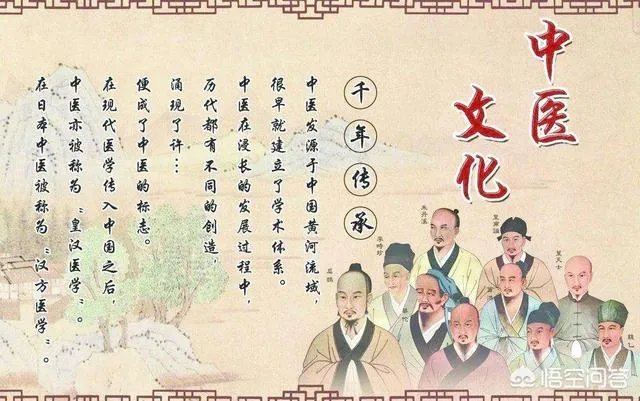 中医
文化
千年传承
中医发源于中国黄河流域，
很早就建立了学术体系。
中医在漫长的发展过程中，
历代都有不同的创造，
涌现了许…
便成了中医的标志。
在现代医学传入中国之后，
中医亦被称为“皇汉医学”。
在日本中医被称为“汉方医学”。
朱丹溪
李时珍
扁鹊
葉天士
钱乙
悟空问答